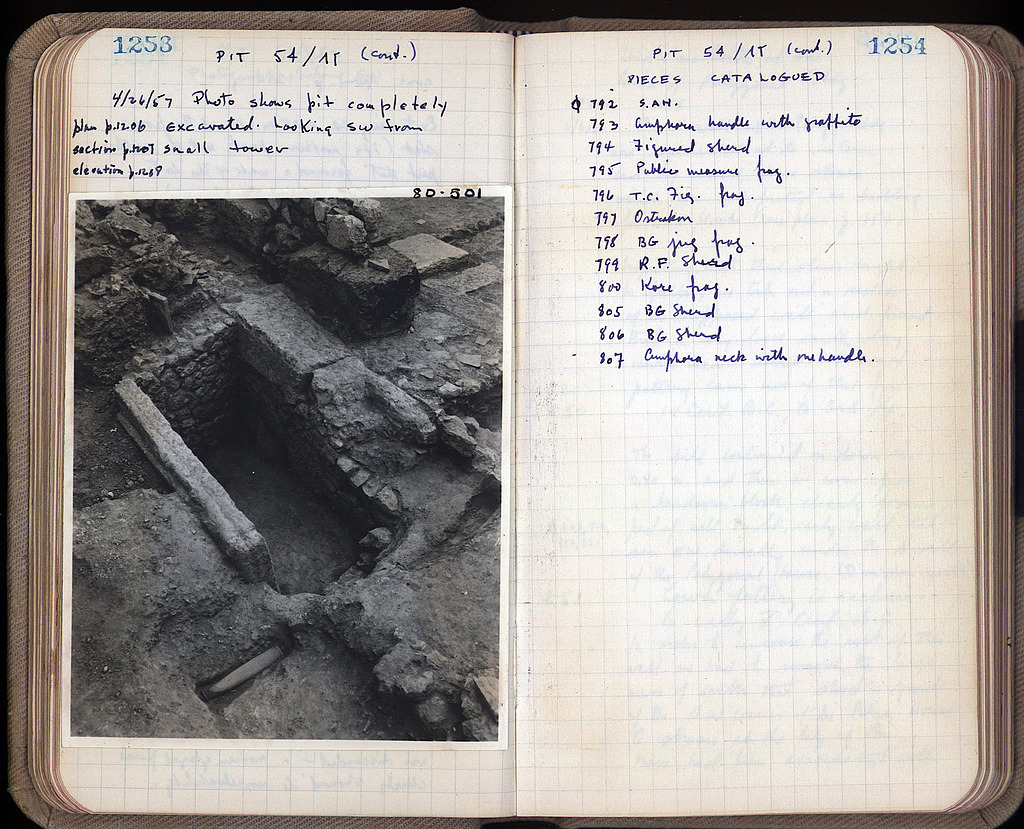 1253
PIT 54/1T (cont.)
4/26/57 Photo shows pit completely
plan p.1206 excavated. Looking SW from
section p.1207 small tower
elevation p.1208
80-501
PIT 54/1T (cont.) 1254
PIECES CATALOGUED
792 S.A.H.
793 Amphora handle with graffito
794 Figured Sherd
795 Public measure frag.
796 T.C. Fig. frag.
797 Ostrakon
798 BG jug frag.
799 R.F. Sherd
800 Kore frag.
805 BG Sherd
806 BG Sherd
807 Amphora neck with one handle.